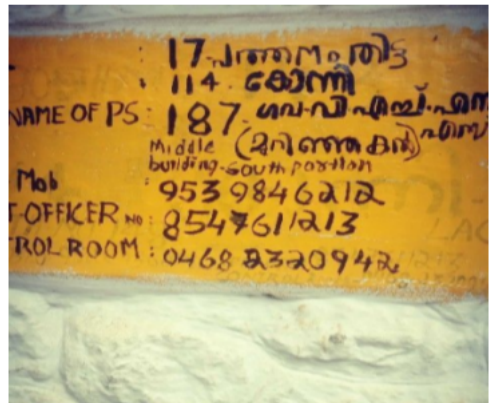 : 17 പത്തനംതിട്ട
: 114. കോന്നി
NAME OF PS : 187. ഗവ.വി.എച്ച്.എസ്
എസ്
Middle
building-South Portion
Mob : 9539846212
T-OFFICER NO : 8547611213
TROL ROOM : 0468 2320942